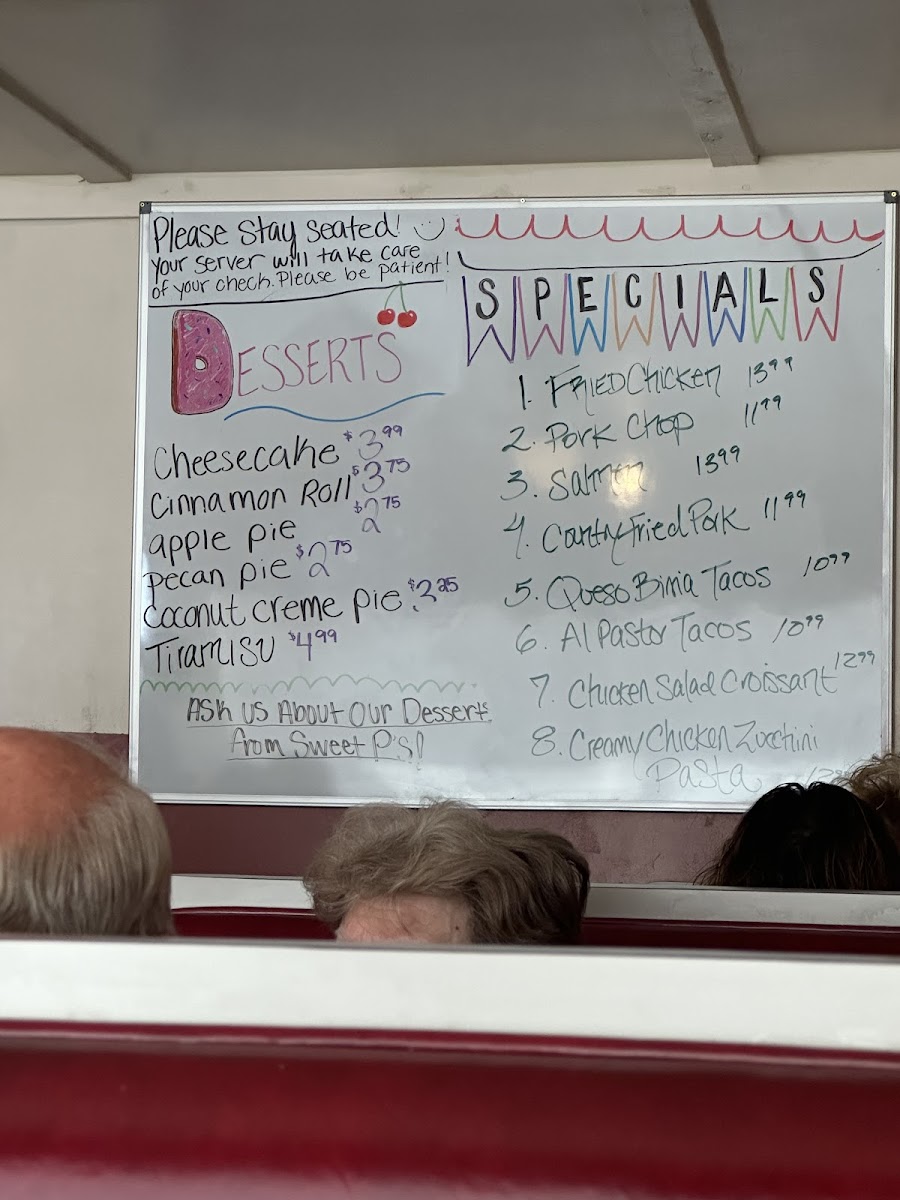 Please stay seated! :)
your server will take care
of your check. Please be patient!
DESSERTS
Cheesecake $3.99
Cinnamon Roll $3.75
apple pie $2.75
pecan pie $2.75
Coconut creme pie $3.25
Tiramisu $4.99
ASk us About Our Desserts
from Sweet P's!
SPECIALS
1. FRIED Chicken 13.99
2. Pork Chop 11.99
3. Salmon 13.99
4. Contry Fried Pork 11.99
5. Queso Birria Tacos 10.99
6. Al Pastor Tacos 10.99
7. Chicken Salad Croissant 12.99
8. Creamy Chicken Zucchini
Pasta